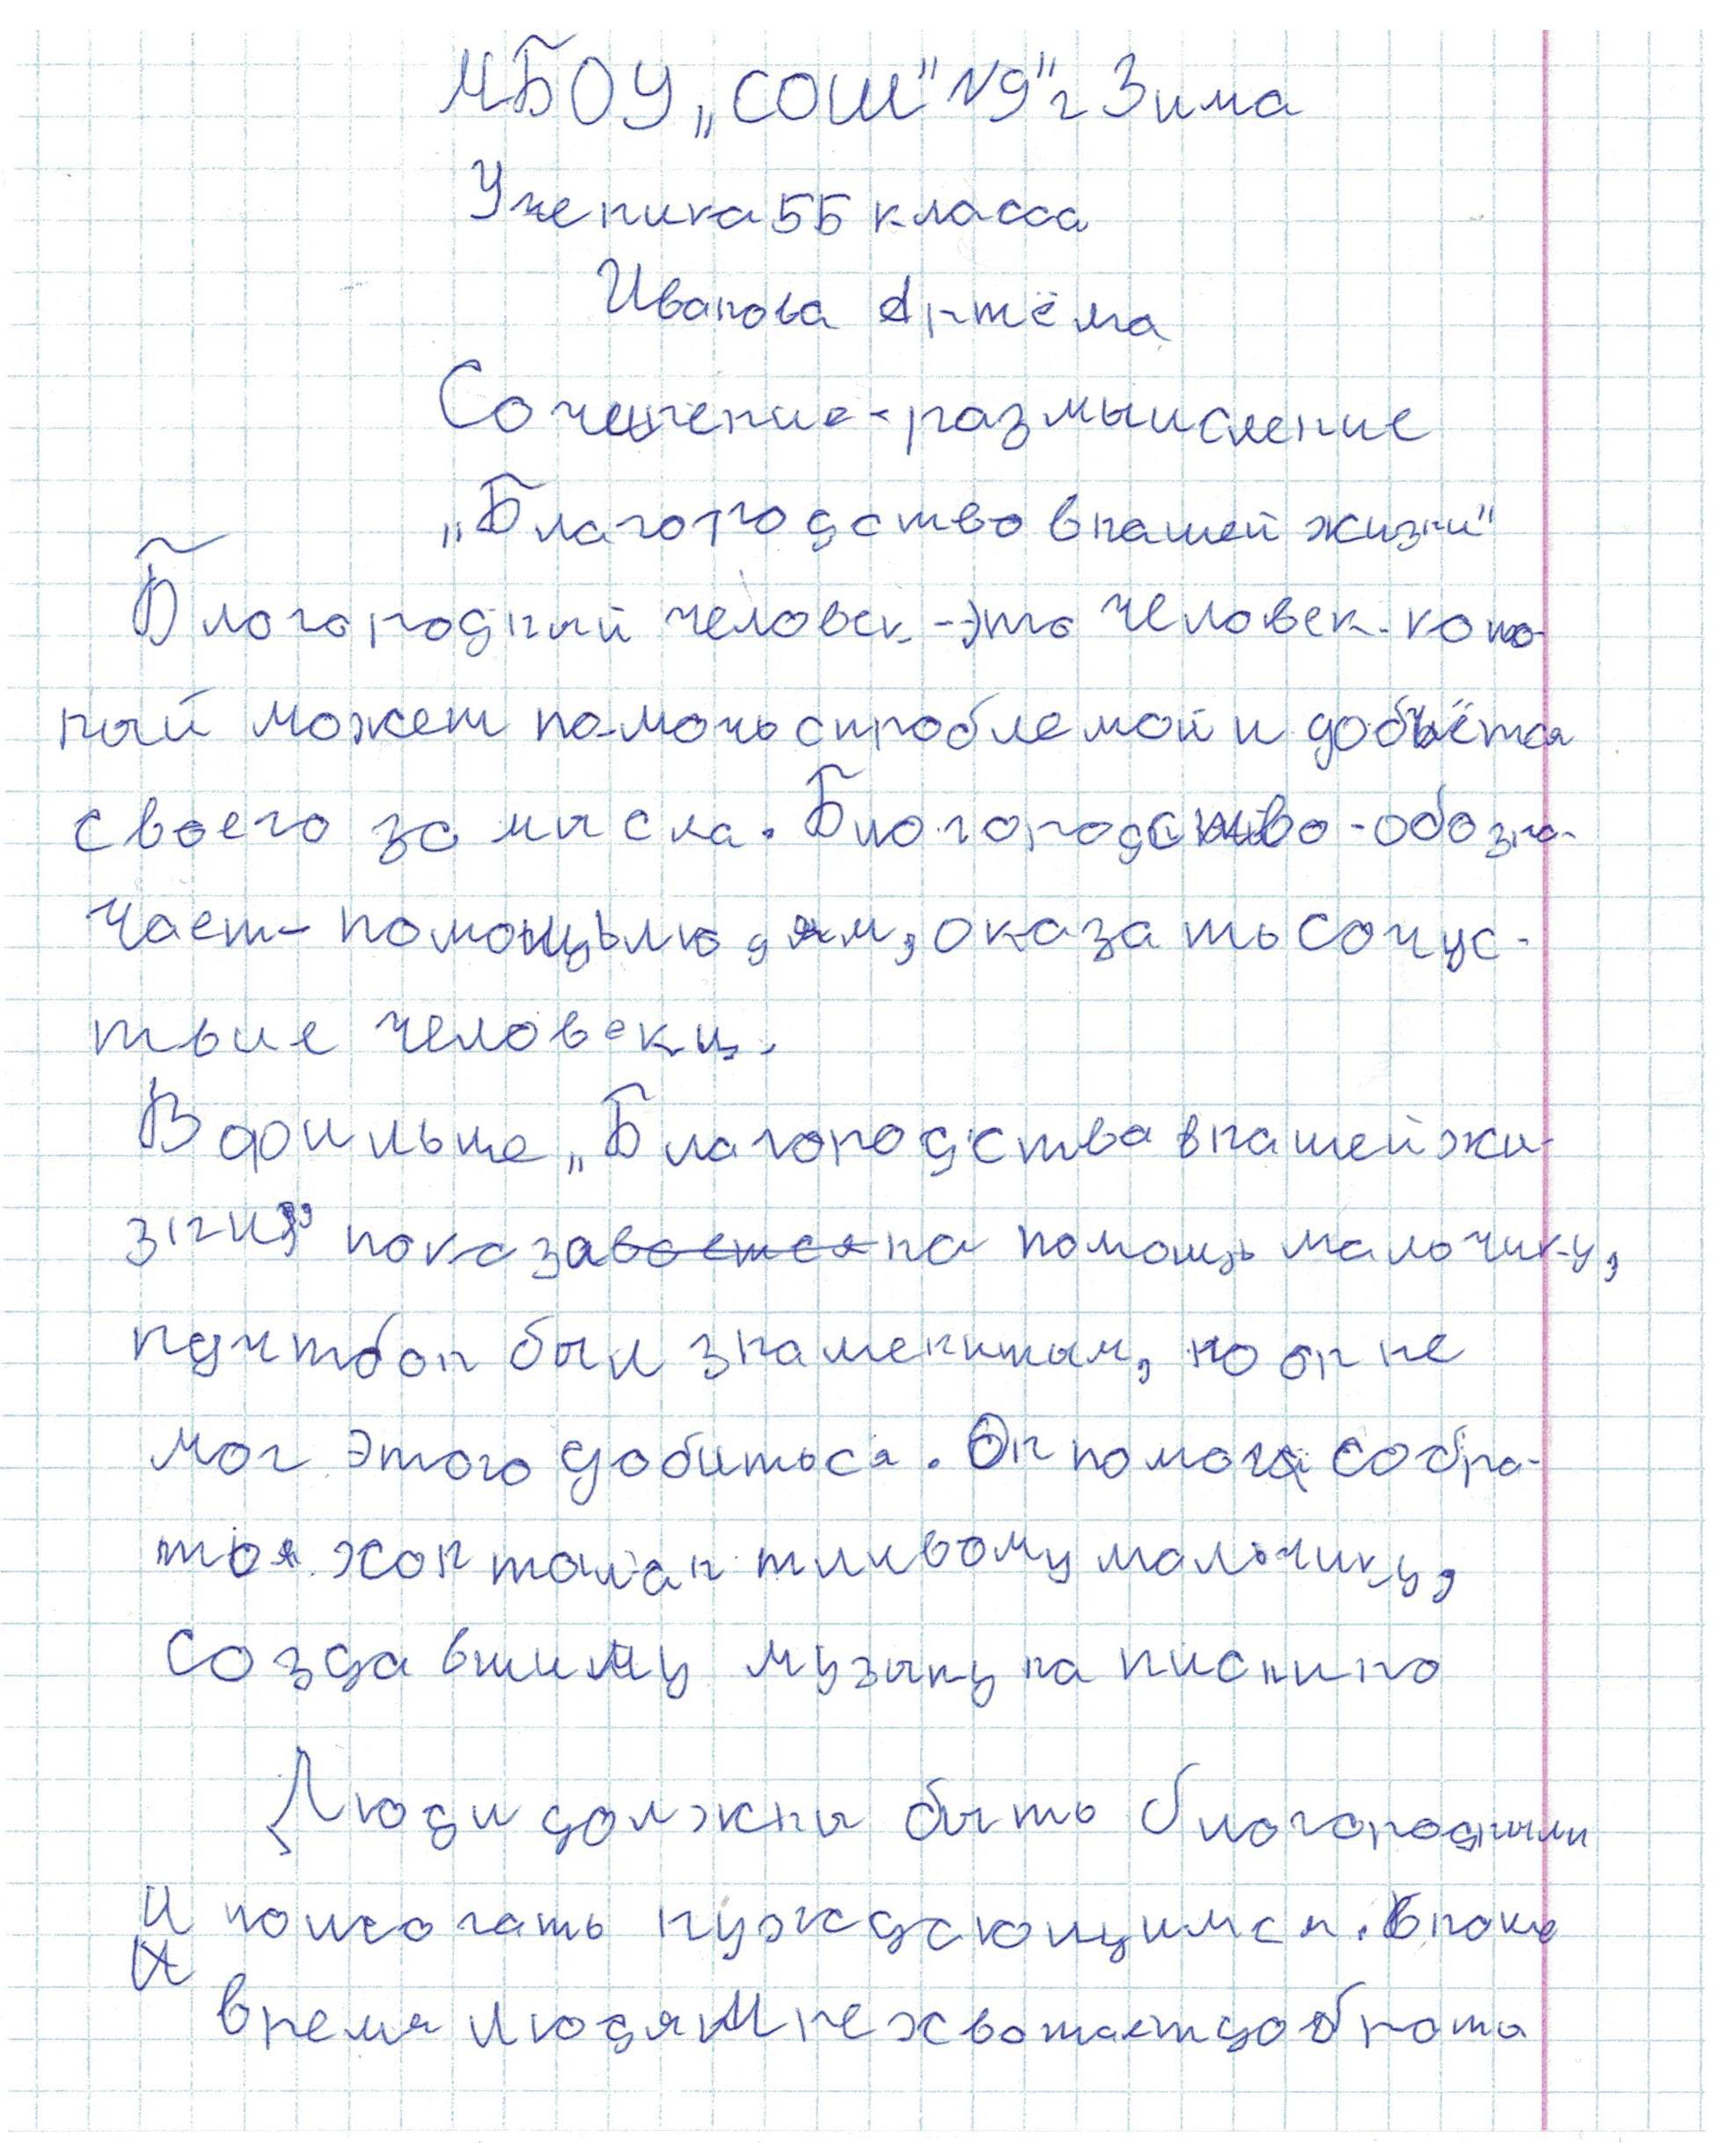 МБОУ „СОШ" №9" г Зима
Ученика 5Б класса
Иванова Артёма
Сочинение-размышсление
„Благородство в нашей жизни"
Благородный человек - это человек кото-
рый может помочь с проблемой и добьётся
своего замысла. Благородство - обозна-
чает - помощь людям, оказать сочус-
твие человеку.
В фильме „Благородства в нашей жи-
зни" показа на помощь мальчику,
был знаменитым, но он не
мог этого добиться. Он помог собра-
тся хор талантливому мальчику,
создавшиму музыку на писнино
Люди должны быть благородными
и помогать нуждающимся. В наше
время людям не хватает доброты